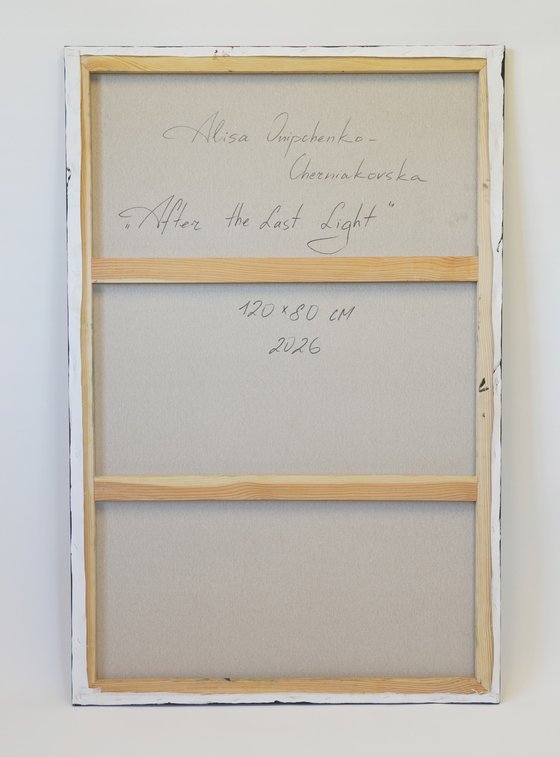 Alisa Onipchenko-
Cherniakovska
„After the Last Light"
120 × 80 см
2026